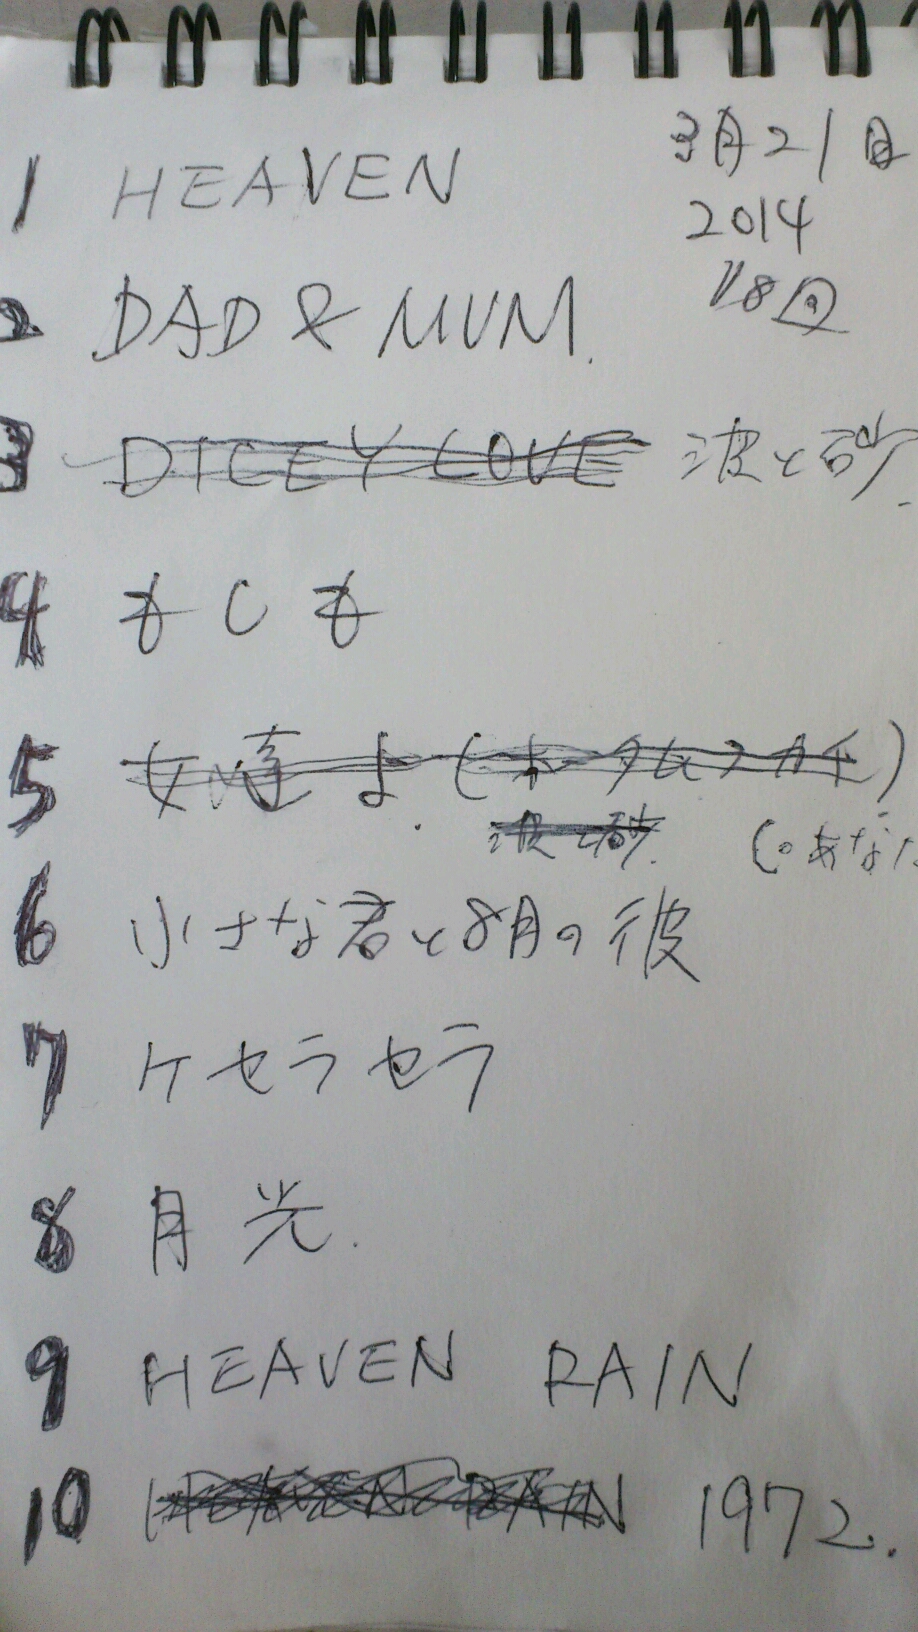 3月21日
2014
18回
1 HEAVEN
2 DAD & MUM.
3 DICEY LOVE 波と砂.
4 もしも
5 女達よ (
波と砂. (。あなた
6 小さな君と8月の彼
7 ケセラセラ
8 月光.
9 HEAVEN RAIN
10 HEAVEN RAIN 1972.